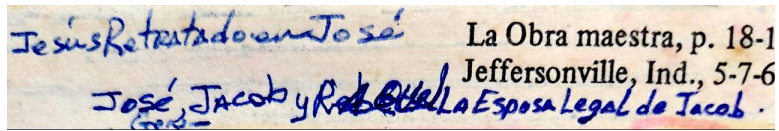 Jesús Retratado en José
La Obra maestra, p. 18-1
Jeffersonville, Ind., 5-7-6
José, Jacob y La Esposa Legal de Jacob.